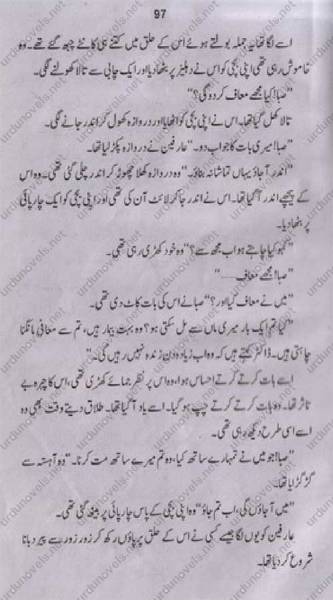 97
اسے لگا تھا یہ جملہ بولتے ہوئے اس کے حلق میں کتنے ہی کانٹے چبھ گئے تھے۔ وہ
خاموش رہی تھی اپنی بچی کو اس نے دہلیز پر بٹھا دیا اور ایک چابی سے تالا کھولنے لگی۔
"صبا! کیا مجھے معاف کر دو گی؟"
تالا کھل گیا تھا۔ اس نے اپنی بچی کو اٹھایا اور دروازہ کھول کر اندر جانے لگی۔
"صبا! میری بات کا جواب دو۔" عارفین نے دروازہ پکڑ لیا تھا۔
"اندر آ جاؤ یہاں تماشا نہ بناؤ۔" وہ دروازہ کھلا چھوڑ کر اندر چلی گئی تھی۔ وہ اس
کے پیچھے اندر آ گیا تھا۔ اس نے اندر جا کر لائٹ آن کی تھی اور اپنی بچی کو ایک چارپائی پر
بٹھا دیا۔
"کہو کیا چاہتے ہو اب مجھ سے؟" وہ خود کھڑی رہی تھی۔
"صبا! مجھے معاف ......"
"میں نے معاف کیا اور؟" صبا نے اس کی بات کاٹ دی تھی۔
"کیا تم ایک بار میری ماں سے مل سکتی ہو؟ وہ بہت بیمار ہیں، تم سے معافی مانگنا
چاہتی ہیں۔ ڈاکٹر کہتے ہیں کہ وہ اب زیادہ دن زندہ نہیں رہیں گی۔"
اسے بات کرتے کرتے احساس ہوا، وہ اس پر نظر جمائے کھڑی تھی، اس کا چہرہ بے
تاثر تھا۔ وہ بات کرتے کرتے چپ ہو گیا۔ اسے یاد آ گیا تھا۔ طلاق دیتے وقت بھی وہ
اسے اسی طرح دیکھ رہی تھی۔
"صبا! جو میں نے تمہارے ساتھ کیا، وہ تم میرے ساتھ مت کرنا۔" وہ آہستہ سے
گڑگڑایا تھا۔
"میں آ جاؤں گی، اب تم جاؤ" وہ اپنی بچی کے پاس چارپائی پر بیٹھ گئی تھی۔
عارفین کو یوں لگا جیسے کسی نے اس کے حلق پر پاؤں رکھ کر زور زور سے پیر دبانا
شروع کر دیا تھا۔
urdunovels.net